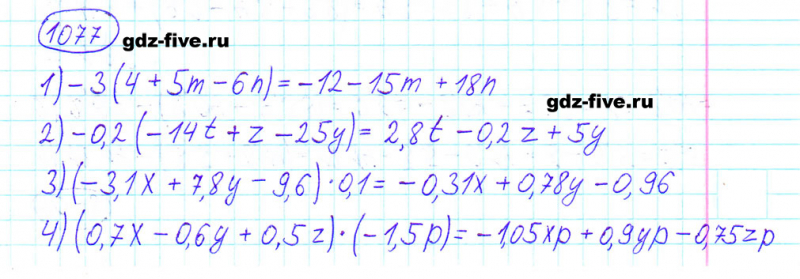 1077 gdz-five.ru
1) -3(4 + 5m - 6n) = -12 - 15m + 18n
gdz-five.ru
2) -0,2(-14t + z - 25y) = 2,8t - 0,2z + 5y
3) (-3,1x + 7,8y - 9,6) · 0,1 = -0,31x + 0,78y - 0,96
4) (0,7x - 0,6y + 0,5z) · (-1,5p) = -1,05xp + 0,9yp - 0,75zp